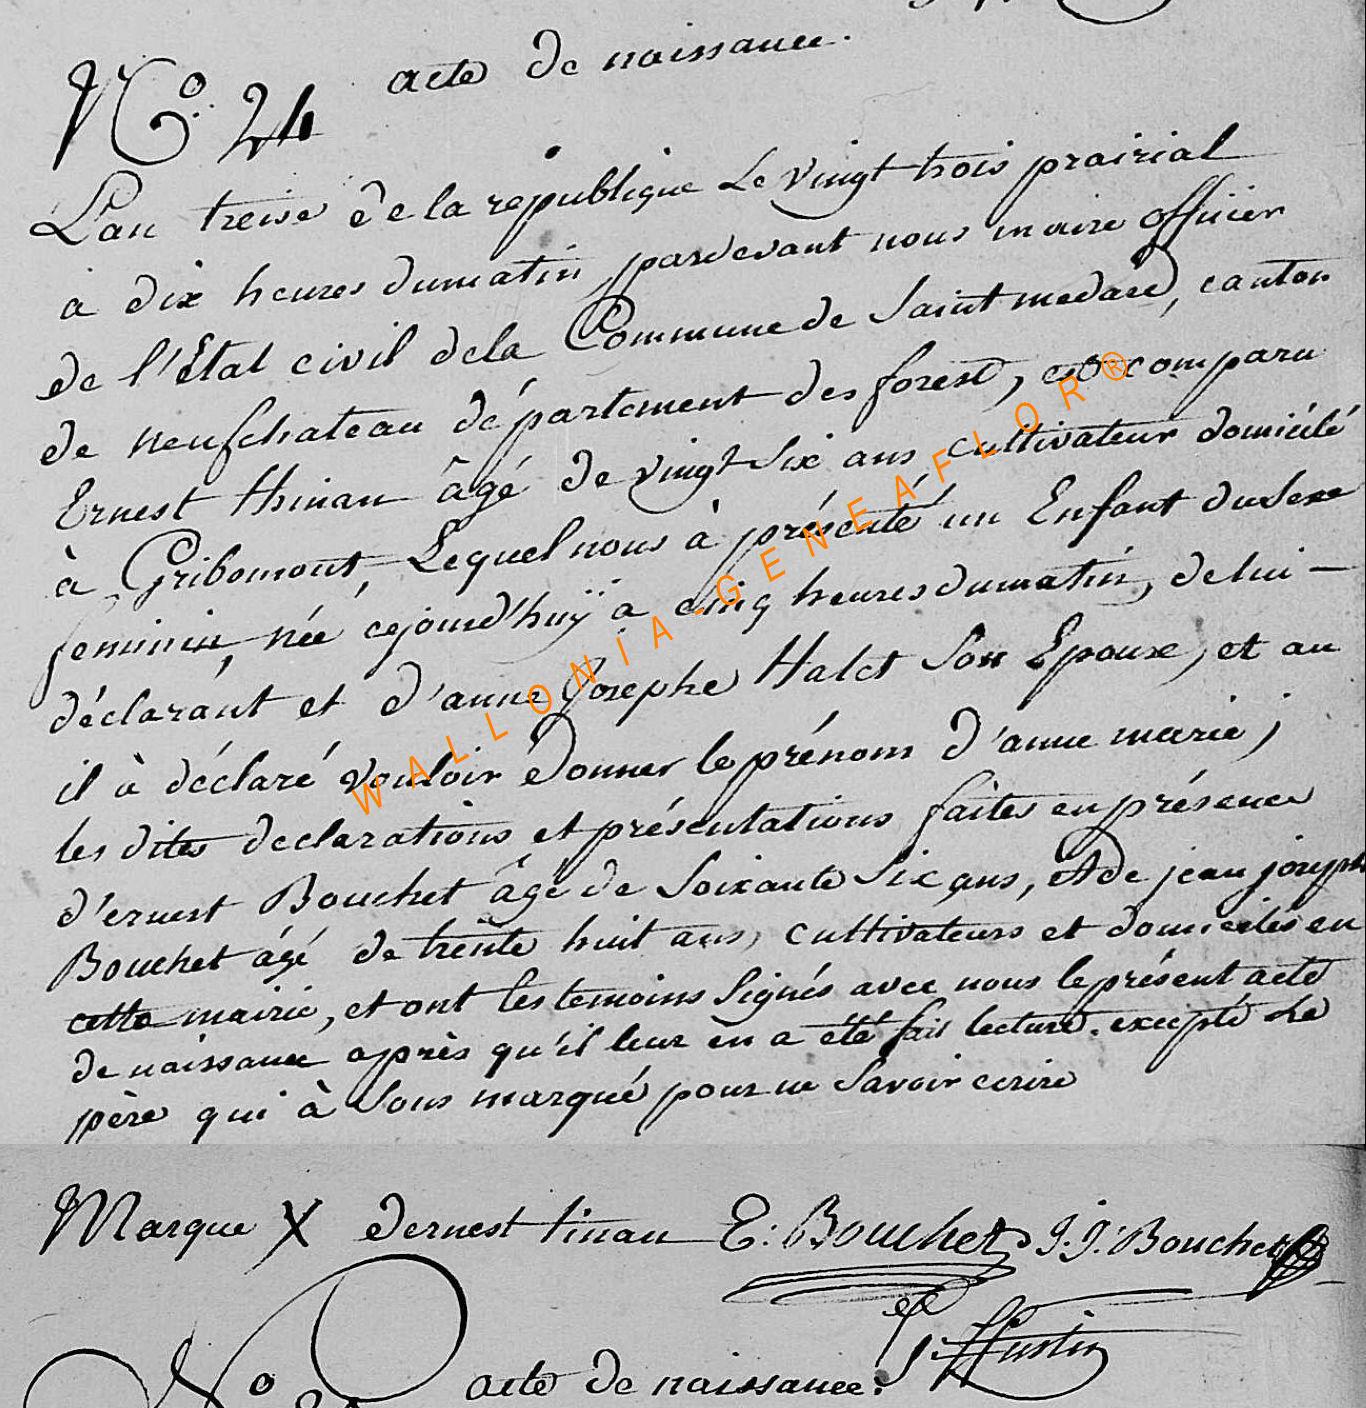 acte de naissance.
N.o 24
L'an treise de la republique Le vingt trois prairial
a dix heures dumatin, pardevant nous maire officier
de l'Etat civil dela Commune de Saint medard, canton
de neufchateau département des forest, est comparu
Ernest thinan âgé de vingt Six ans cultivateur domicilé
à Gribomont, Lequel nous à présenté un Enfant du Sexe
feminin, née cejourd'huÿ a cinq heures dumatin, de lui -
déclarant et d'anne Josephe Halet Son Epouse, et au
il à déclaré vouloir donner le prénom d'anne marie;
les dites declarations et présentations faites en présence
d'ernest Bouchet âgé de Soixante Six ans, et de jean joseph
Bouchet âgé de trente huit ans, cultivateurs et domicilés en
cette mairie, et ont les temoins Signés avec nous le présent acte
de naissance après qu'il leur en a été fait lecture. excepté Le
père qui à Sous marqué pour ne Savoir ecrire
Marque X dernest tinan E: Bouchet J.J. Bouchet
N.o acte de naissance.
WALLONIA-GENEAFLOR®